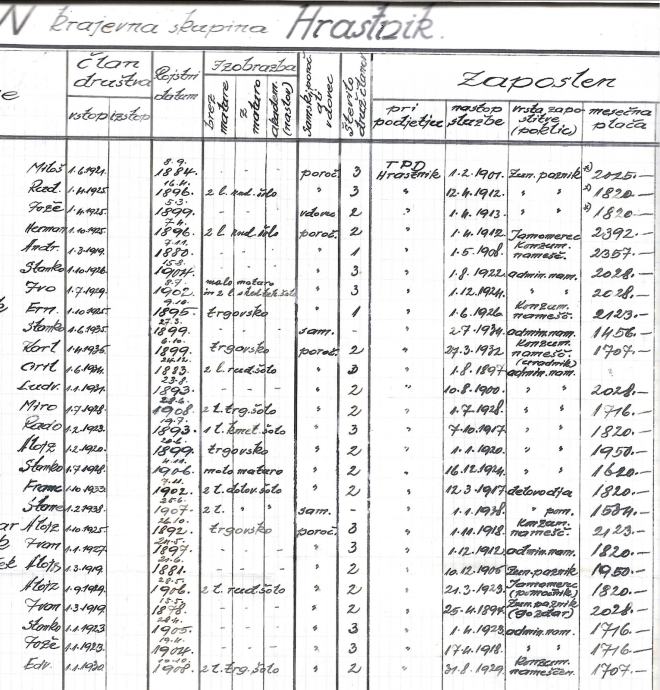 N krajevna skupina Hrastnik
Član društva Rojstni datum Izobrazba samski, poroč. ali vdovec število druž. članov Zaposlen
vstop izstop brez mature z maturo akadem. (naslov) pri podjetju nastop službe vrsta zaposlitve (poklic) mesečna plača
Miloš 1.6.1921. 8.9. 1884. - - - poroč. 3 TPD Hrastnik 1.2.1901. Zun. paznik x) 2025.—
Rud. 1.4.1925 16.4. 1896. 2 l. rud. šolo " 3 " 12.4.1912. " " 1820.—
Jože 1.4.1925. 5.3. 1899. - - - vdovec 2 " 1.4.1913. " " x) 1820.—
Herman 1.10.1925 7.4. 1896. 2 l. rud. šolo poroč. 2 " 1.4.1912 Jamomerec 2392.—
Andr. 1.3.1919. 7.11. 1880. - - - " 1 " 1.5.1908. Konzum. namešč. 2357.—
Stanko 1.10.1926. 15.8. 1904. - - - " 3 " 1.8.1922. admin. nam. 2028.—
Ivo 1.7.1929. 8.7. 1902. malo maturo in 2 l. " 3 " 1.12.1924. " " 2028.—
Ern. 1.10.1925 9.10. 1895. trgovsko " 1 " 1.6.1926. Konzum. namešč. 2123.—
Stanko 1.6.1935 27.3. 1899. - - - sam. - " 2.7.1934. admin. nam. 1456.—
Karl 1.4.1935. 6.10. 1899. trgovsko poroč. 2 " 21.3.1932 Konzum. namešč. (uradnik) 1707.—
Ciril 1.6.1924. 24.12. 1883. 2 l. rud. šolo " 3 " 1.8.1897 admin. nam.
Ludv. 1.1.1921. 23.8. 1893. - - - " 2 " 10.8.1900. " " 2028.—
Miro 1.7.1928. 28.6. 1908. 2 l. trg. šolo " 2 " 1.7.1928. " " 1716.—
Rado 1.2.1923. 19.7. 1893. 1 l. kmet. šolo " 3 " 7.10.1917. " " 1820.—
Alojz 1.2.1920. 20.6. 1899. trgovsko " 2 " 1.1.1920. " " 1950.—
Stanko 1.7.1928. 4.11. 1906. malo maturo " 2 " 16.12.1924. " " 1620.—
Franc 1.10.1933. 7.11. 1902. 2 l. delov. šolo " 2 " 12.3.1917 delovodja 1820.—
Stane 1.2.1938. 25.6. 1907. 2 l. " " sam. - " 1.1.1938. " pom. 1534.—
ar Alojz 1.10.1925. 26.10. 1892. trgovsko poroč. 3 " 1.11.1918. Konzum. namešč. 2123.—
Ivan 1.1.1927. 24.5. 1897. - - - " 3 " 1.12.1912. admin. nam. 1820.—
ek Alojz 1.3.1919 21.6. 1881. - - - " 2 " 10.12.1905 Zun. paznik 1950.—
Alojz 1.9.1929. 28.5. 1906. 2 l. rud. šolo " 2 " 21.3.1923. Jamomerec (pomočnik) 1820.—
Ivan 1.3.1919 13.5. 1878. - - - " 2 " 25.4.1894. Zun. paznik (gozdar) 2028.—
Stanko 1.1.1923 28.4. 1905. - - - " 3 " 1.4.1923. admin. nam. 1716.—
Jože 1.1.1923. 19.4. 1904. - - - " 3 " 17.4.1918. " " 1716.—
Edv. 1.1.1930. 1908. 2 l. trg. šolo " 2 " 31.8.1929. Konzum. nameščen. 1707.—